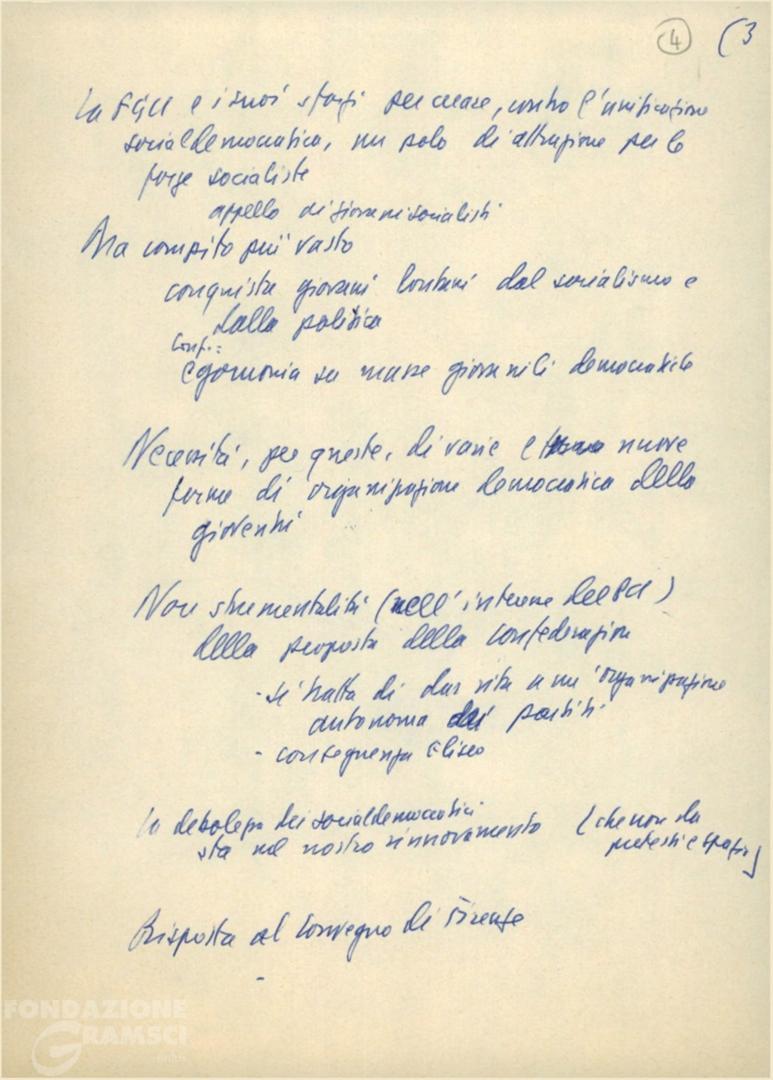 4 (3
La FGCI e i suoi sforzi per creare, contro l'unificazione
socialdemocratica, un polo di attrazione per le
forze socialiste
appello di giovani socialisti
Ma compito più vasto
conquista giovani lontani dal socialismo e
dalla politica
Conf.:
Egemonia su masse giovanili democratiche
Necessità, per queste, di varie e nuove
forme di organizzazione democratica della
gioventù
Non strumentalità (nell'interesse del PCI)
della proposta della confederazione
- si tratta di dar vita a un'organizzazione
autonoma dai partiti
- conseguenza
La debolezza dei socialdemocratici
sta nel nostro rinnovamento (che non dà
pretesti e spazio)
Risposta al Convegno di Firenze
-
FONDAZIONE
GRAMSCI